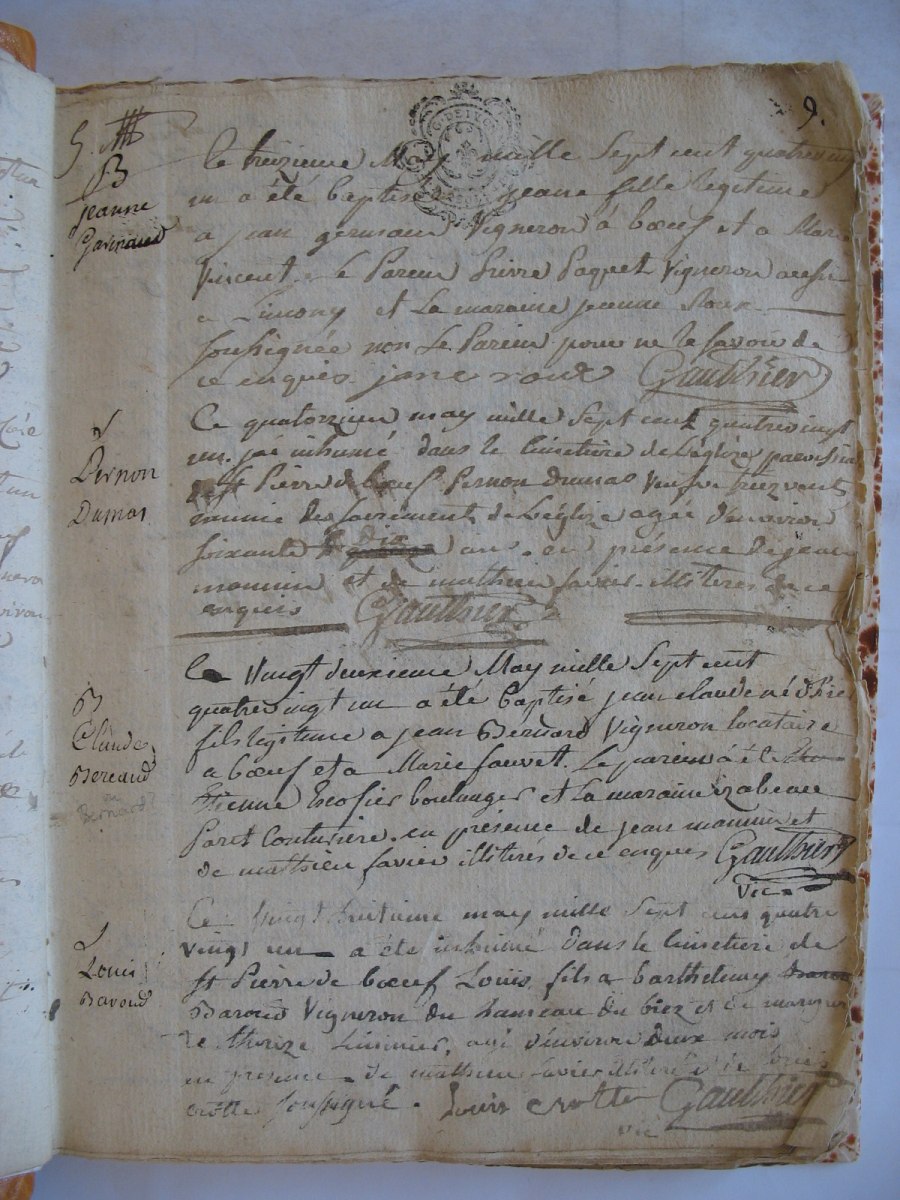 9.
B
jeanne
Ce treizieme May mille Sept cent quatrevingt
un a été baptisé jeane fille legitime
a jean germain Vigneron à bœuf et a Marie
Vincent. Le Parein Pierre Paquet Vigneron
a Limony et La maraine jeanne Roux
soussignée non Le Parein pour ne le savoir de
ce enquis jane roux Gauthier
Pernon
Dumas
Ce quatorzieme may mille Sept cent quatrevingt
un j'ai inhumé dans le Cimetiere de L'eglize paroissial
de St Pierre de bœuf Pernon Dumas Veuve
munie des sacrement de L'eglize agée d'environ
soixante dix ans. en présence de jean
mounin et de mathieu favier illitéres de ce
enquis Gauthier
B
Claude
Bereaud
ou
Bernard?
Ce Vingt deuxieme May mille Sept cent
quatrevingt un a été baptisé jean claude né d'hier
fils legitime a jean Bernard Vigneron locataire
a bœuf et a Marie fauvet. Le parein à été
Etienne boulanger et La maraine izabeau
Paret Couturiere. en présence de jean mounin et
de mathieu favier illiterés de ce enques Gauthier
Vic
Louis
Baroud
Ce Vingt huitieme may mille Sept cens quatre
vingt un a été inhumé dans le Cimetiere de
St Pierre de bœuf Louis fils a barthelemy
Baroud Vigneron du hameau du biez et de margueri
te therize agé d'environ deux mois
en presence de mathieu favier illitéré et de Louis
crotte soussigné. Louis crotte Gauthier
vic